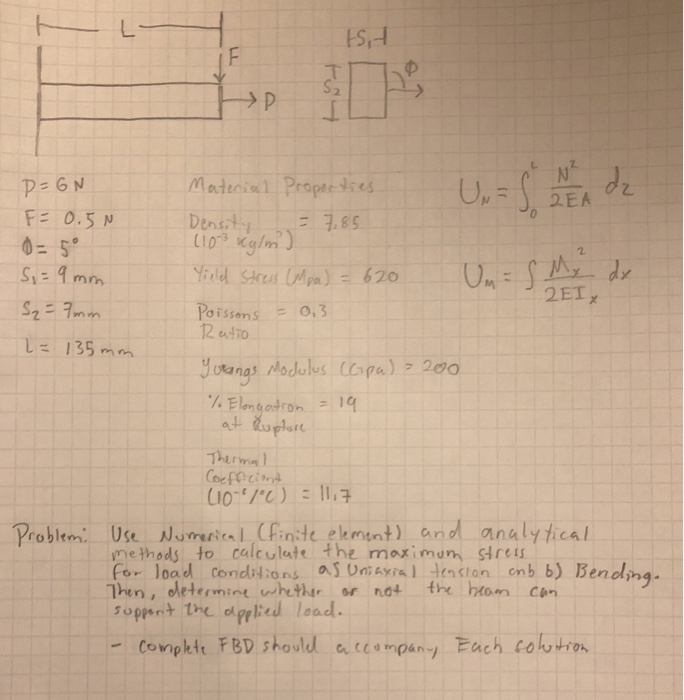 L
F
P
S₁
S₂
Φ
P = 6 N
F = 0.5 N
Φ = 5°
S₁ = 9 mm
S₂ = 7mm
L = 135 mm
Material Properties
Density = 7.85
(10⁻³ kg/m³)
Yield Stress (Mpa) = 620
Poissons = 0.3
Ratio
Youngs Modulus (Gpa) = 200
% Elongation = 19
at Rupture
Thermal
Coefficient
(10⁻⁶/°C) = 11.7
U_N = ∫₀ᴸ N²/2EA dz
U_M = ∫ Mₓ²/2EIₓ dx
Problem: Use Numerical (finite element) and analytical
methods to calculate the maximum stress
for load conditions a) Uniaxial tension and b) Bending.
Then, determine whether or not the beam can
support the applied load.
- Complete FBD should accompany Each solution